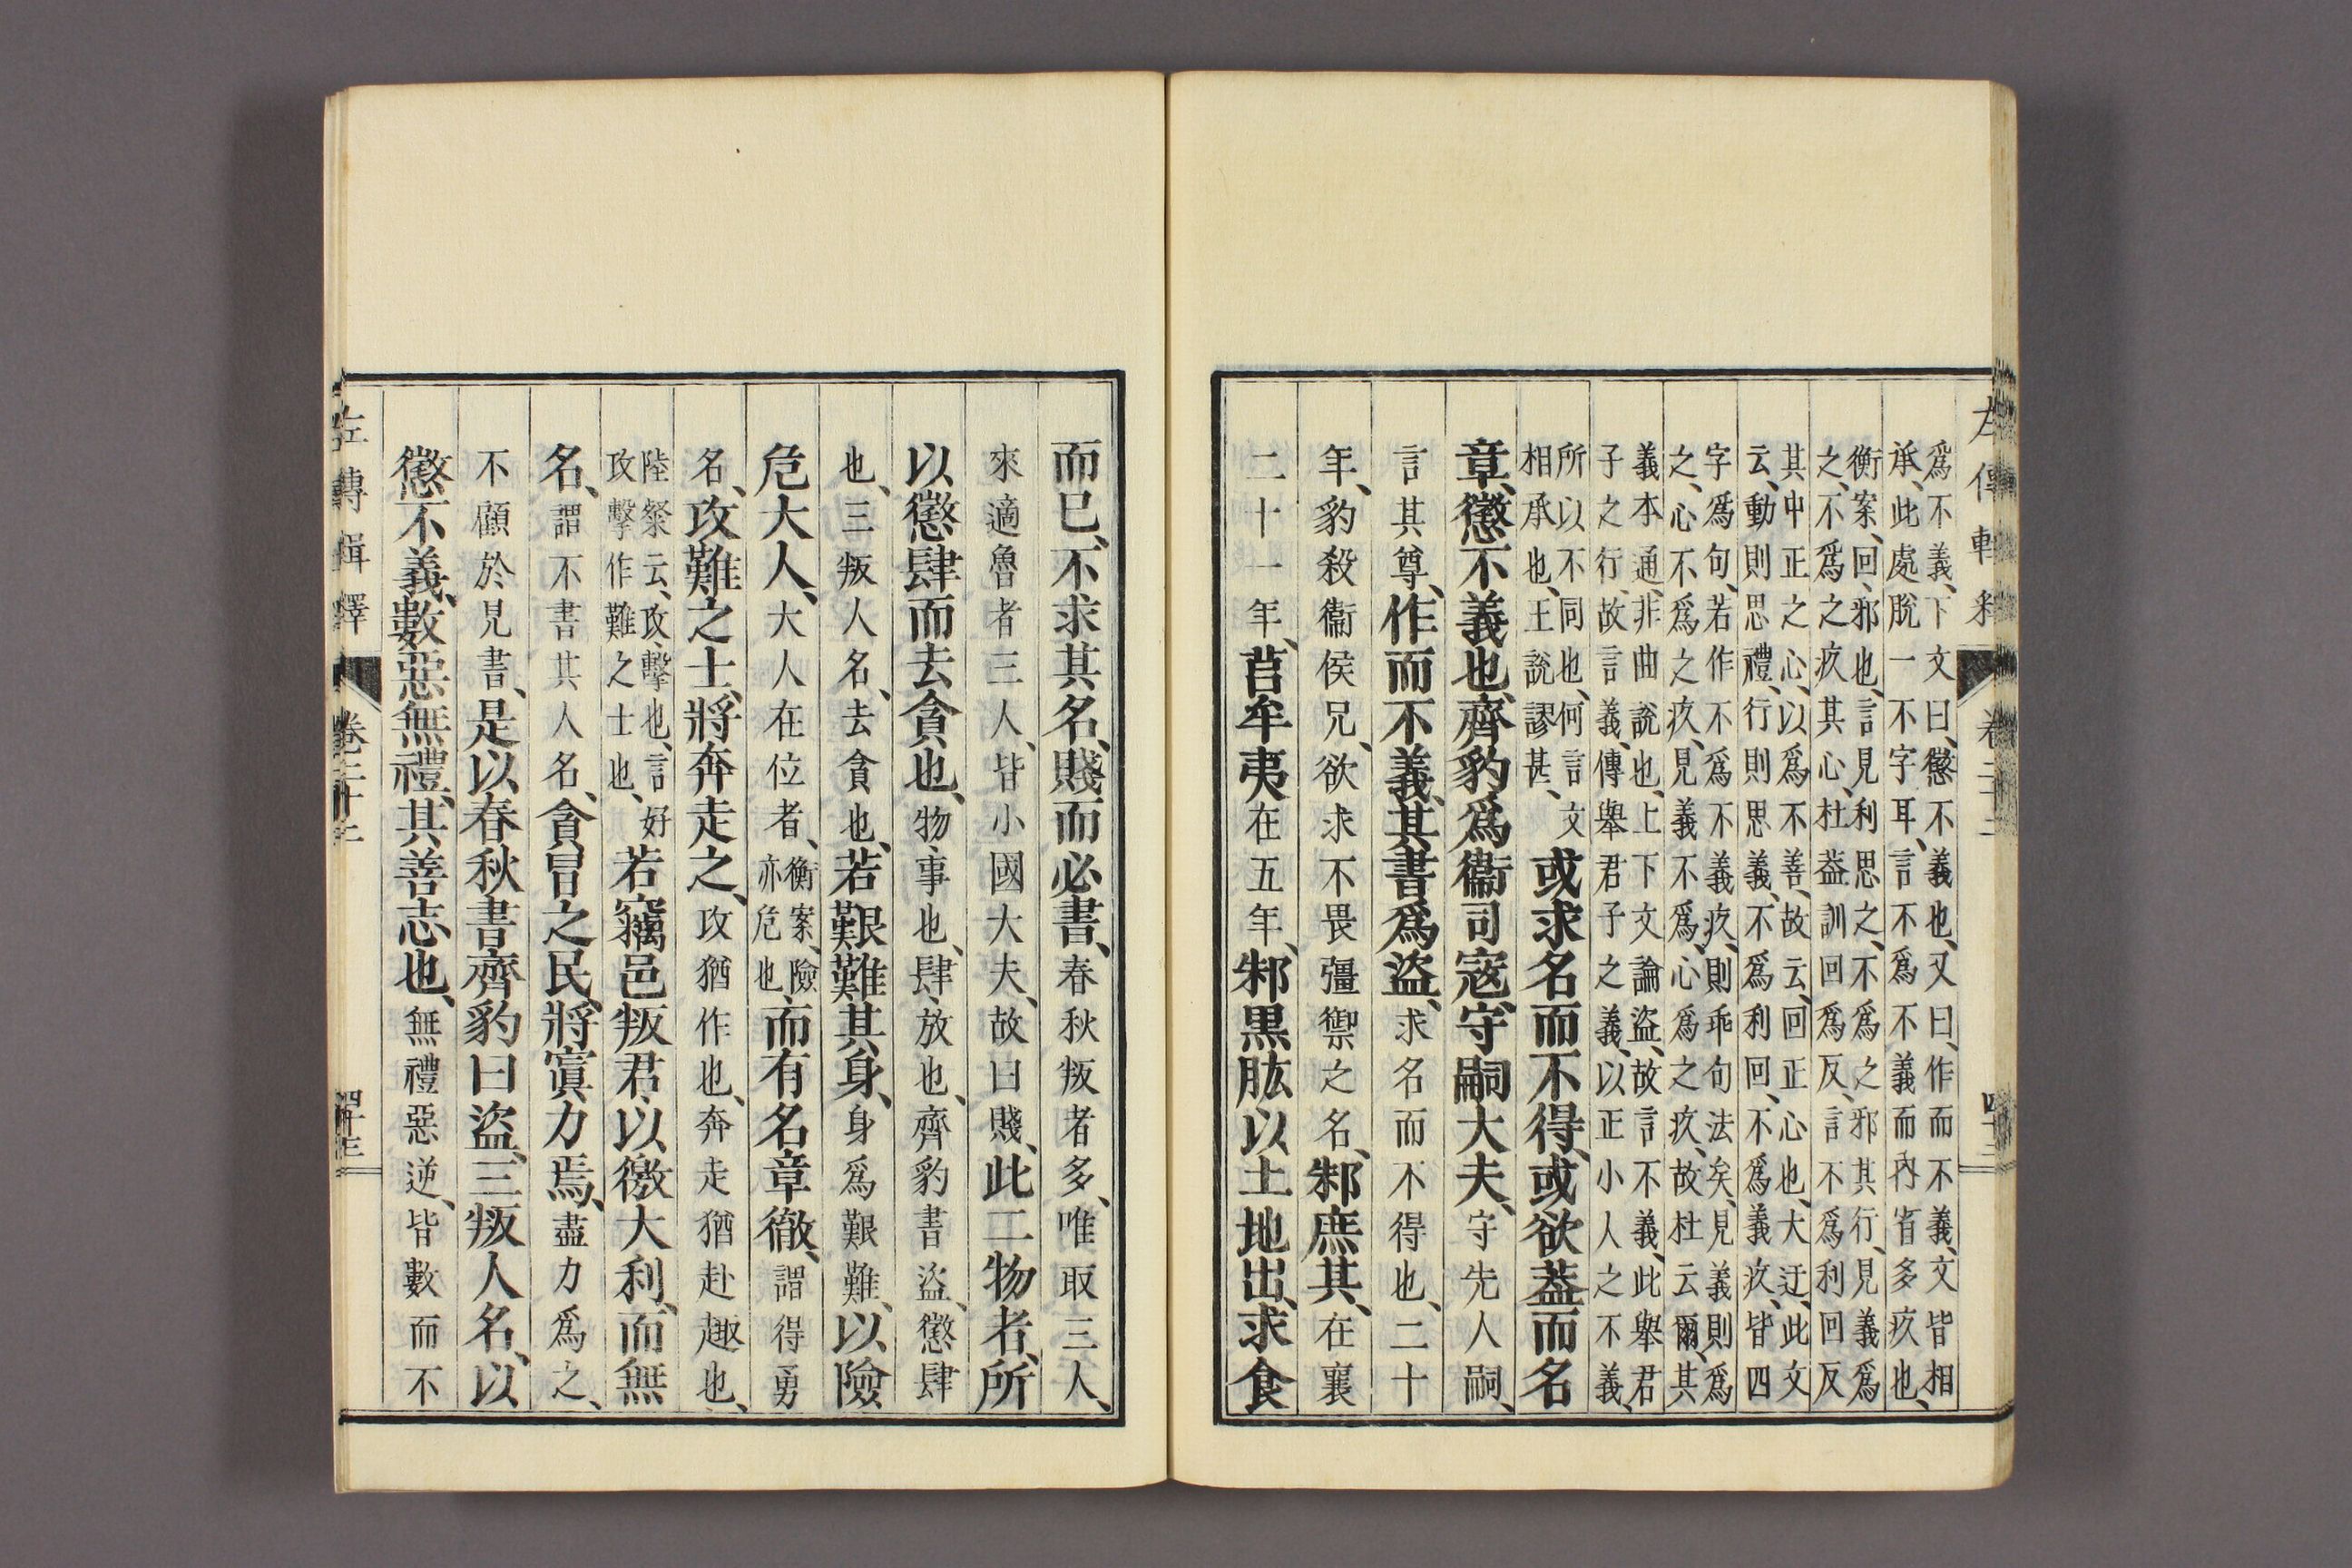 爲不義、下文曰、懲不義也、又曰、作而不義、文皆相
承、此處脫一不字耳、言不爲不義而內省多疚也、
衡案、回、邪也、言見利思之、不爲之邪其行、見義爲
之、不爲之疚其心、杜蓋訓回爲反、言不爲利回反
其中正之心、以爲不善、故云、回正心也、大迂、此文
云、動則思禮、行則思義、不爲利回、不爲義疚、皆四
字爲句、若作不爲不義疚、則乖句法矣、見義則爲
之、心不爲之疚、見義不爲、心爲之疚、故杜云爾、其
義本通、非曲說也、上下文論盜、故言不義、此舉君
子之行、故言義、傳舉君子之義、以正小人之不義、
所以不同也、何言文
相承也、王說謬甚、
或求名而不得、或欲蓋而名
章、懲不義也、齊豹爲衞司寇、守嗣大夫、守先人嗣、
言其尊、作而不義、其書爲盜、求名而不得也、二十
年、豹殺衞侯兄、欲求不畏彊禦之名、邾庶其、在襄
二十一年、莒牟夷在五年、邾黑肱以土地出、求食
而已、不求其名、賤而必書、春秋叛者多、唯取三人、
來適魯者三人、皆小國大夫、故曰賤、此二物者、所
以懲肆而去貪也、物、事也、肆、放也、齊豹書盜、懲肆
也、三叛人名、去貪也、若艱難其身、身爲艱難、以險
危大人、大人在位者、
衡案、險
亦危也、
而有名章徹、謂得勇
名、攻難之士、將奔走之、攻猶作也、奔走猶赴趣也、
陸粲云、攻、擊也、言好
攻擊作難之士也、
若竊邑叛君、以徼大利、而無
名、謂不書其人名、貪冒之民、將寘力焉、盡力爲之、
不顧於見書、是以春秋書齊豹曰盜、三叛人名、以
懲不義、數惡無禮、其善志也、無禮惡逆、皆數而不
左傳輯釋
卷二十二
四十三